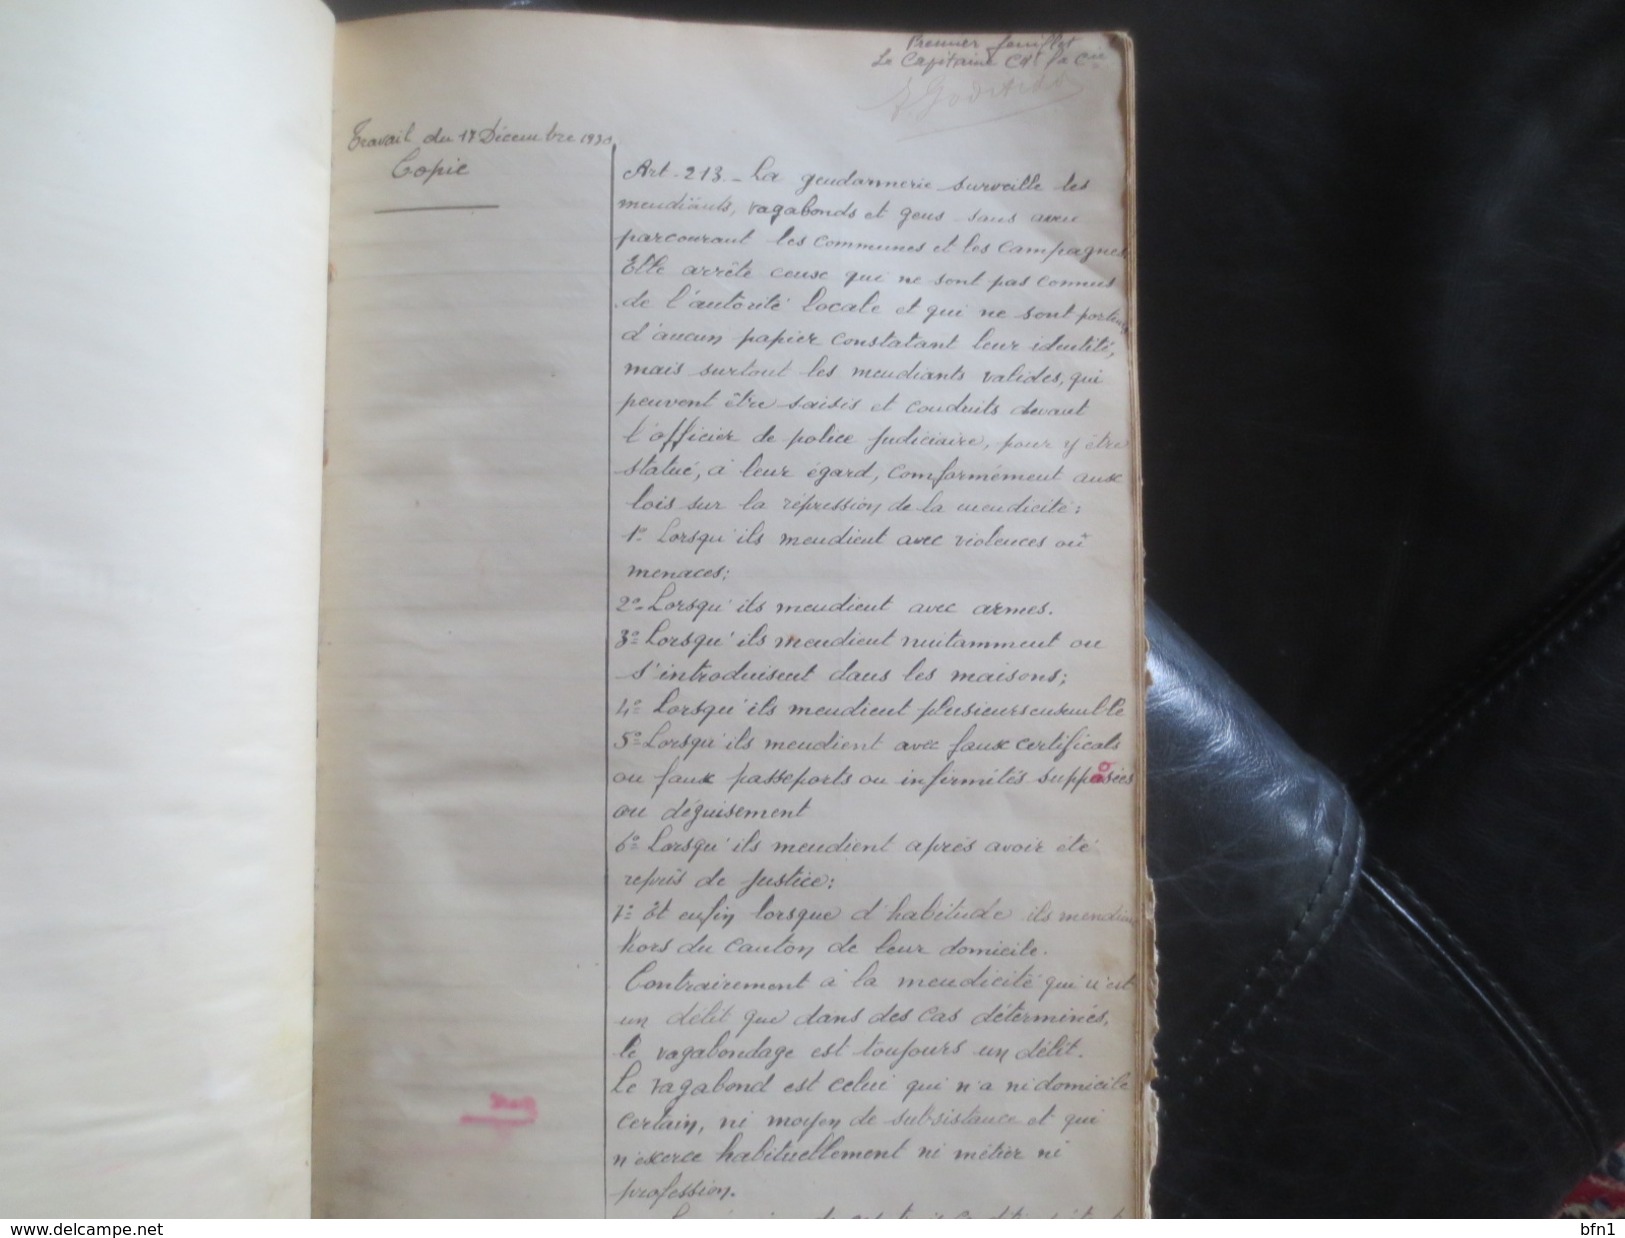 Premier feuillet
Le Capitaine Ct la Cie
Travail du 17 Décembre 1930
Copie
Art. 213. - La gendarmerie surveille les
mendiants, vagabonds et gens sans aveu
parcourant les communes et les campagnes
Elle arrête ceux qui ne sont pas connus
de l'autorité locale et qui ne sont porteurs
d'aucun papier constatant leur identité,
mais surtout les mendiants valides, qui
peuvent être saisis et conduits devant
l'officier de police judiciaire, pour y être
statué, à leur égard, conformément aux
lois sur la répression de la mendicité:
1º Lorsqu'ils mendient avec violences ou
menaces;
2º Lorsqu'ils mendient avec armes.
3º Lorsqu'ils mendient nuitamment ou
s'introduisent dans les maisons;
4º Lorsqu'ils mendient plusieurs ensemble
5º Lorsqu'ils mendient avec faux certificats
ou faux passeports ou infirmités supposées
o
ou déguisement
6º Lorsqu'ils mendient après avoir été
repris de justice;
7º Et enfin lorsque d'habitude ils mendient
hors du canton de leur domicile.
Contrairement à la mendicité qui n'est
un délit que dans des cas déterminés,
le vagabondage est toujours un délit.
Le vagabond est celui qui n'a ni domicile
certain, ni moyen de subsistance et qui
n'exerce habituellement ni métier ni
profession.
www.delcampe.net
bfn1